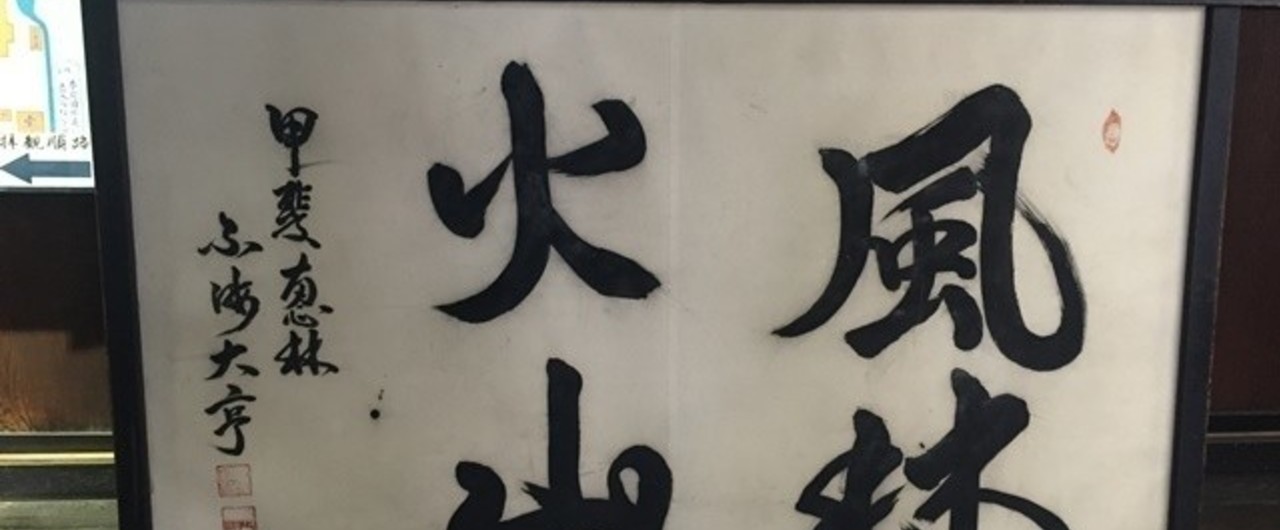 風林
火山
甲斐恵林
宗海大亨
拝観順路